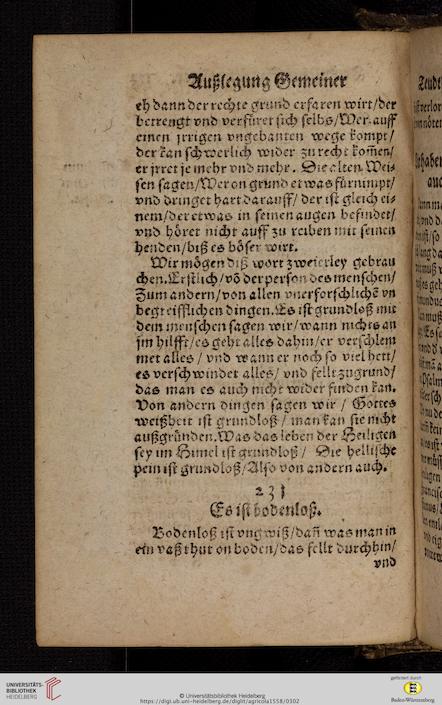 Außlegung Gemeiner
eh dann der rechte grund erfaren wirt/der
betreugt vnd verfüret sich selbs/Wer auff
einen jrrigen vngebanten wege kompt/
der kan schwerlich wider zu recht kom̃en/
er jrret je mehr vnd mehr. Die alten Wei-
sen sagen/Wer on grund etwas fürnimpt/
vnd dringet hart darauff/ der ist gleich ei-
nem/der etwas in seinen augen befindet/
vnd höret nicht auff zu reiben mit seinen
henden/biß es böser wirt.
Wir mögen diß wort zweierley gebrau
chen.Erstlich/võ der person des menschen/
Zum andern/von allen vnerforschlichẽ vn
begreifflichen dingen.Es ist grundloß mit
dem menschen sagen wir/wann nichts an
jm hilfft/es geht alles dahin/er verschlem
met alles / vnd wann er noch so viel hett/
es verschwindet alles/ vnd fellt zu grund/
das man es auch nicht wider finden kan.
Von andern dingen sagen wir / Gottes
weißheit ist grundloß / man kan sie nicht
außgründen.Was das leben der Heiligen
sey im Himel ist grundloß / Die hellische
pein ist grundloß/Also von andern auch.
231
Es ist bodenloß.
Bodenloß ist vngwiß/dañ was man in
ein vaß thut on boden/das fellt durchhin/
vnd
UNIVERSITÄTS-
BIBLIOTHEK
HEIDELBERG
© Universitätsbibliothek Heidelberg
https://digi.ub.uni-heidelberg.de/diglit/agricola1558/0302
gefördert durch
Baden-Württemberg